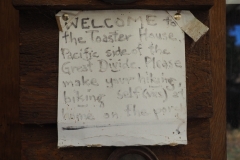 WELCOME to
the Toaster House.
Pacific side of the
Great Divide. Please
make your hiking,
biking self (ves) at
home on the porch